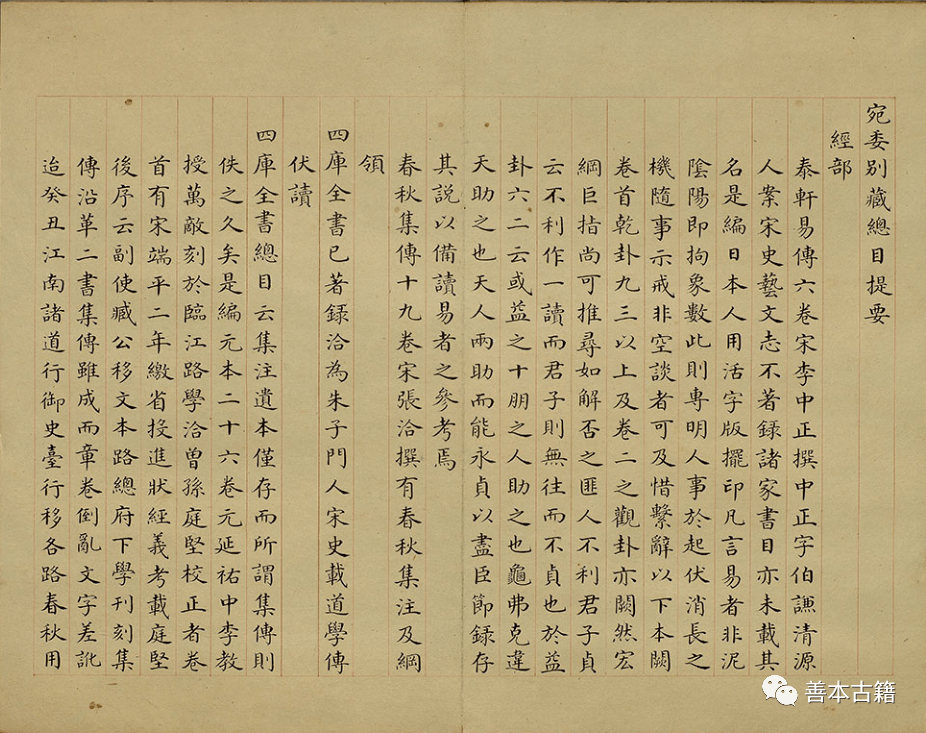 宛委別藏總目提要
經部
泰軒易傳六卷宋李中正撰中正字伯謙清源
人案宋史藝文志不著録諸家書目亦未載其
名是編日本人用活字版擺印凡言易者非泥
陰陽即拘象數此則専明人事於起伏消長之
機隨事示戒非空談者可及惜繫辭以下本闕
卷首乾卦九三以上及卷二之觀卦亦闕然宏
綱巨㨖尚可推尋如解否之匪人不利君子貞
云不利作一讀而君子則無往而不貞也於益
卦六二云或益之十朋之人助之也龜弗克違
天助之也天人兩助而能永貞以盡臣節録存
其説以備讀易者之參考焉
春秋集傳十九卷宋張洽撰有春秋集注及綱
領
四庫全書已著録洽為朱子門人宋史載道學傳
伏讀
四庫全書總目云集注遺本僅存而所謂集傳則
佚之久矣是編元本二十六卷元延祐中李教
授萬敵刻於臨江路學洽曾孫庭堅校正者卷
首有宋端平二年繳省投進狀經義考載庭堅
後序云副使臧公移文本路總府下學刊刻集
傳沿革二書集傳雖成而章卷倒亂文字差訛
迨癸丑江南諸道行御史臺行移各路春秋用
善本古籍